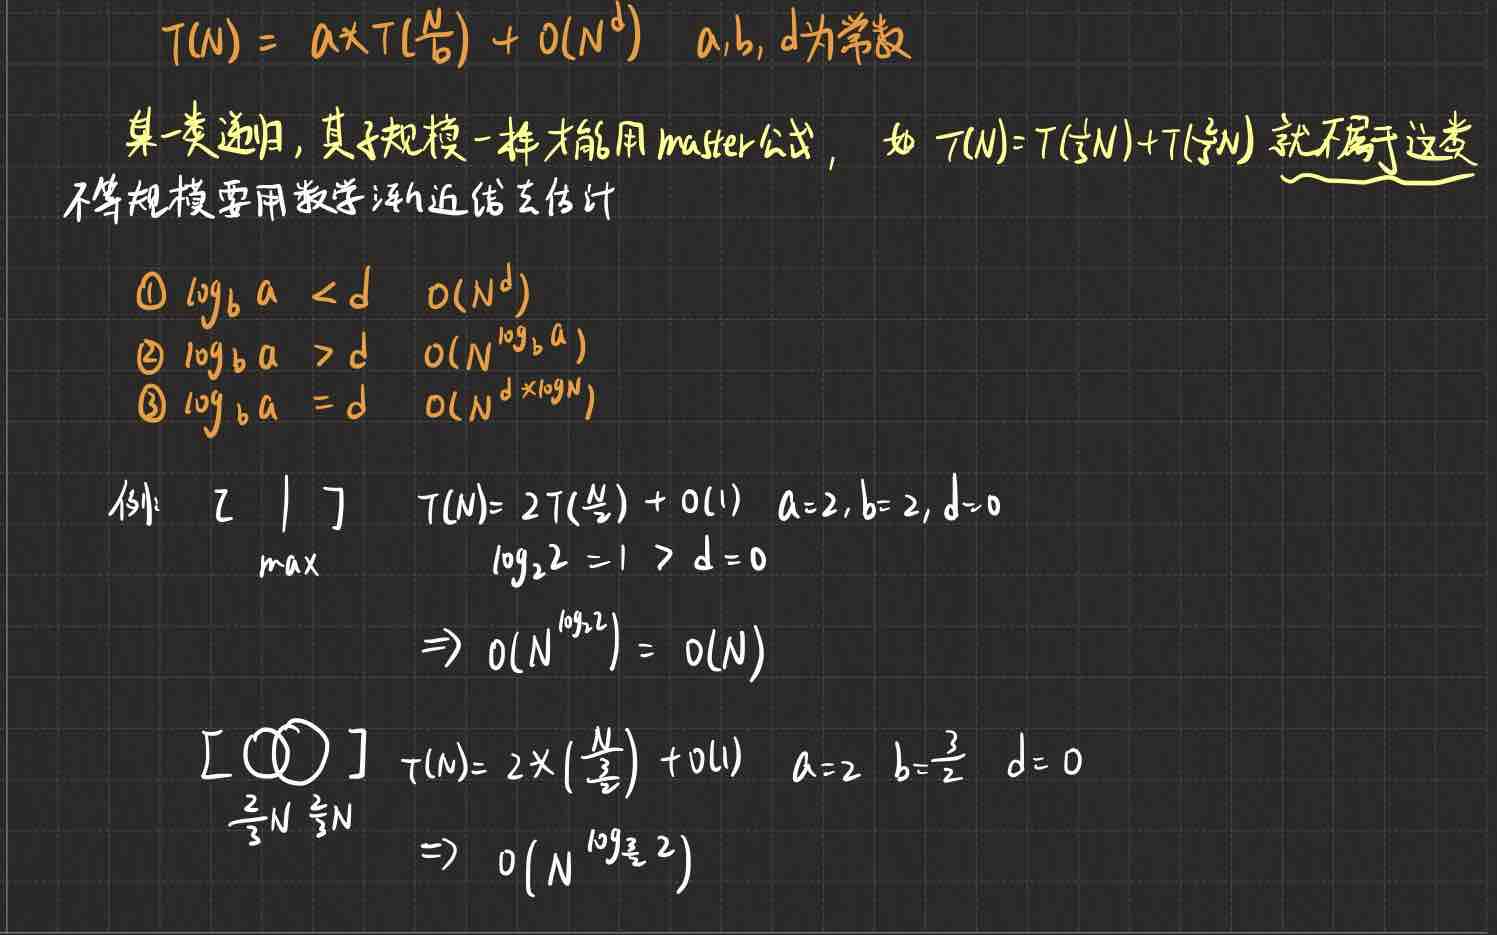 T(N) = a*T(N/b) + O(N^d) a,b,d为常数
某一类递归,其子规模一样才能用master公式, 如 T(N)=T(1/3N)+T(2/3N) 就不属于这类
不等规模要用数学渐近估去估计
① log_b a < d O(N^d)
② log_b a > d O(N^(log_b a))
③ log_b a = d O(N^(d*logN))
例: [ | ] T(N)= 2T(N/2) + O(1) a=2,b=2,d=0
max log_2 2 = 1 > d=0
=> O(N^(log_2 2)) = O(N)
[ ] T(N)= 2*(N/(3/2)) + O(1) a=2 b=3/2 d=0
2/3N 2/3N
=> O(N^(log_(3/2) 2))